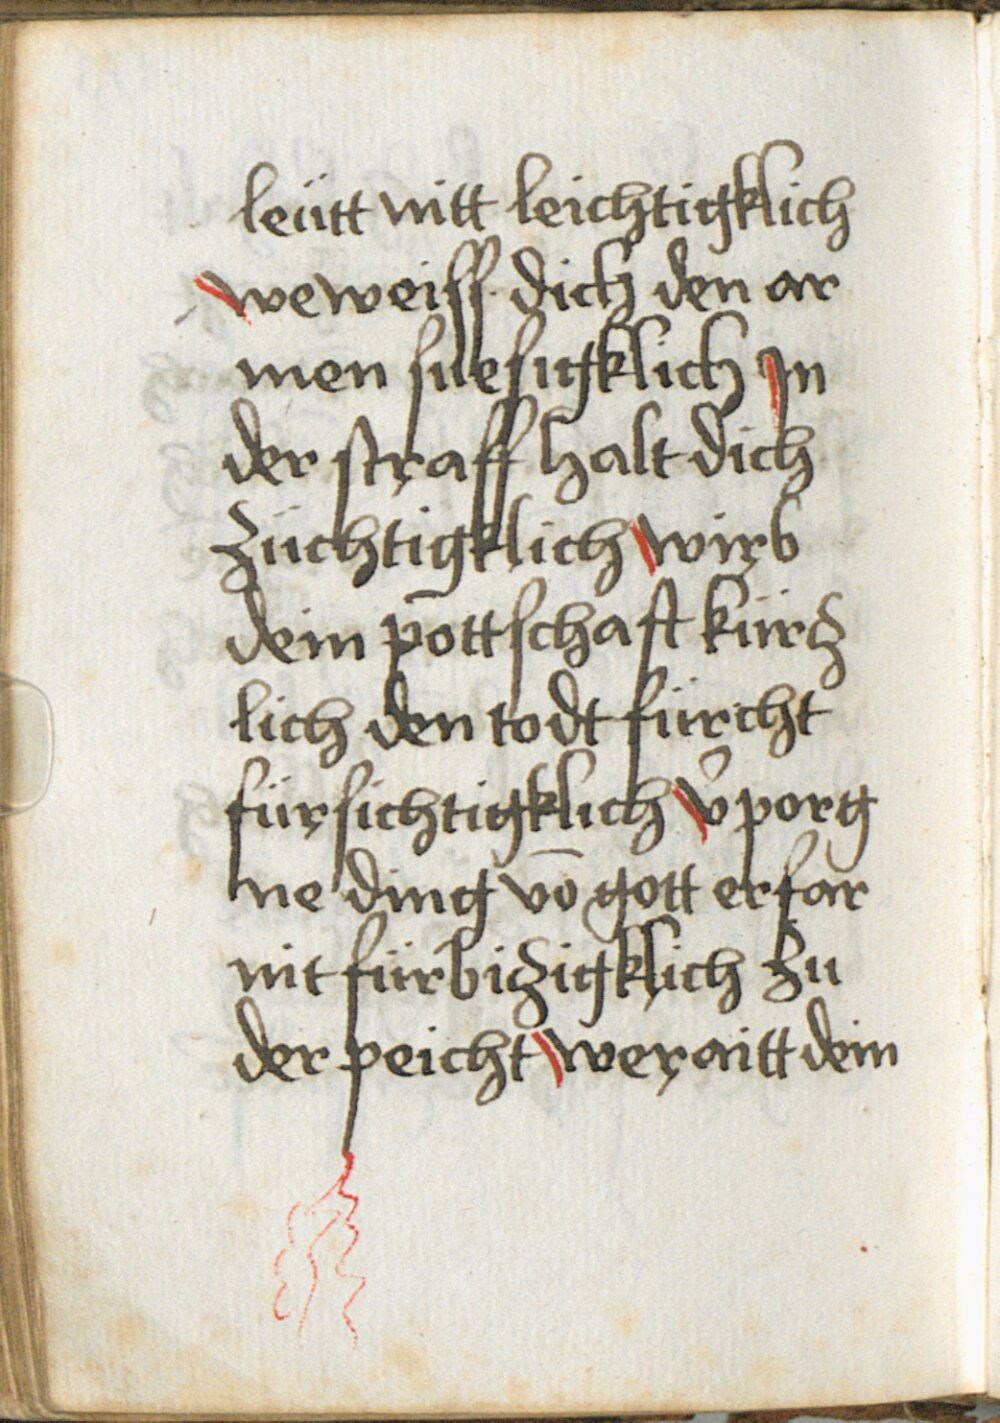 leütt nitt leichtigklich
weweiss dich den ar
men suesigklich Jn
der straff halt dich
züchtigklich wirb
dein pottschafft kürtz
lich den todt fürcht
fürsichtigklich v̾porg
ne ding vō gott erfar
nit fürbizigklich zu
der peicht weraitt dein